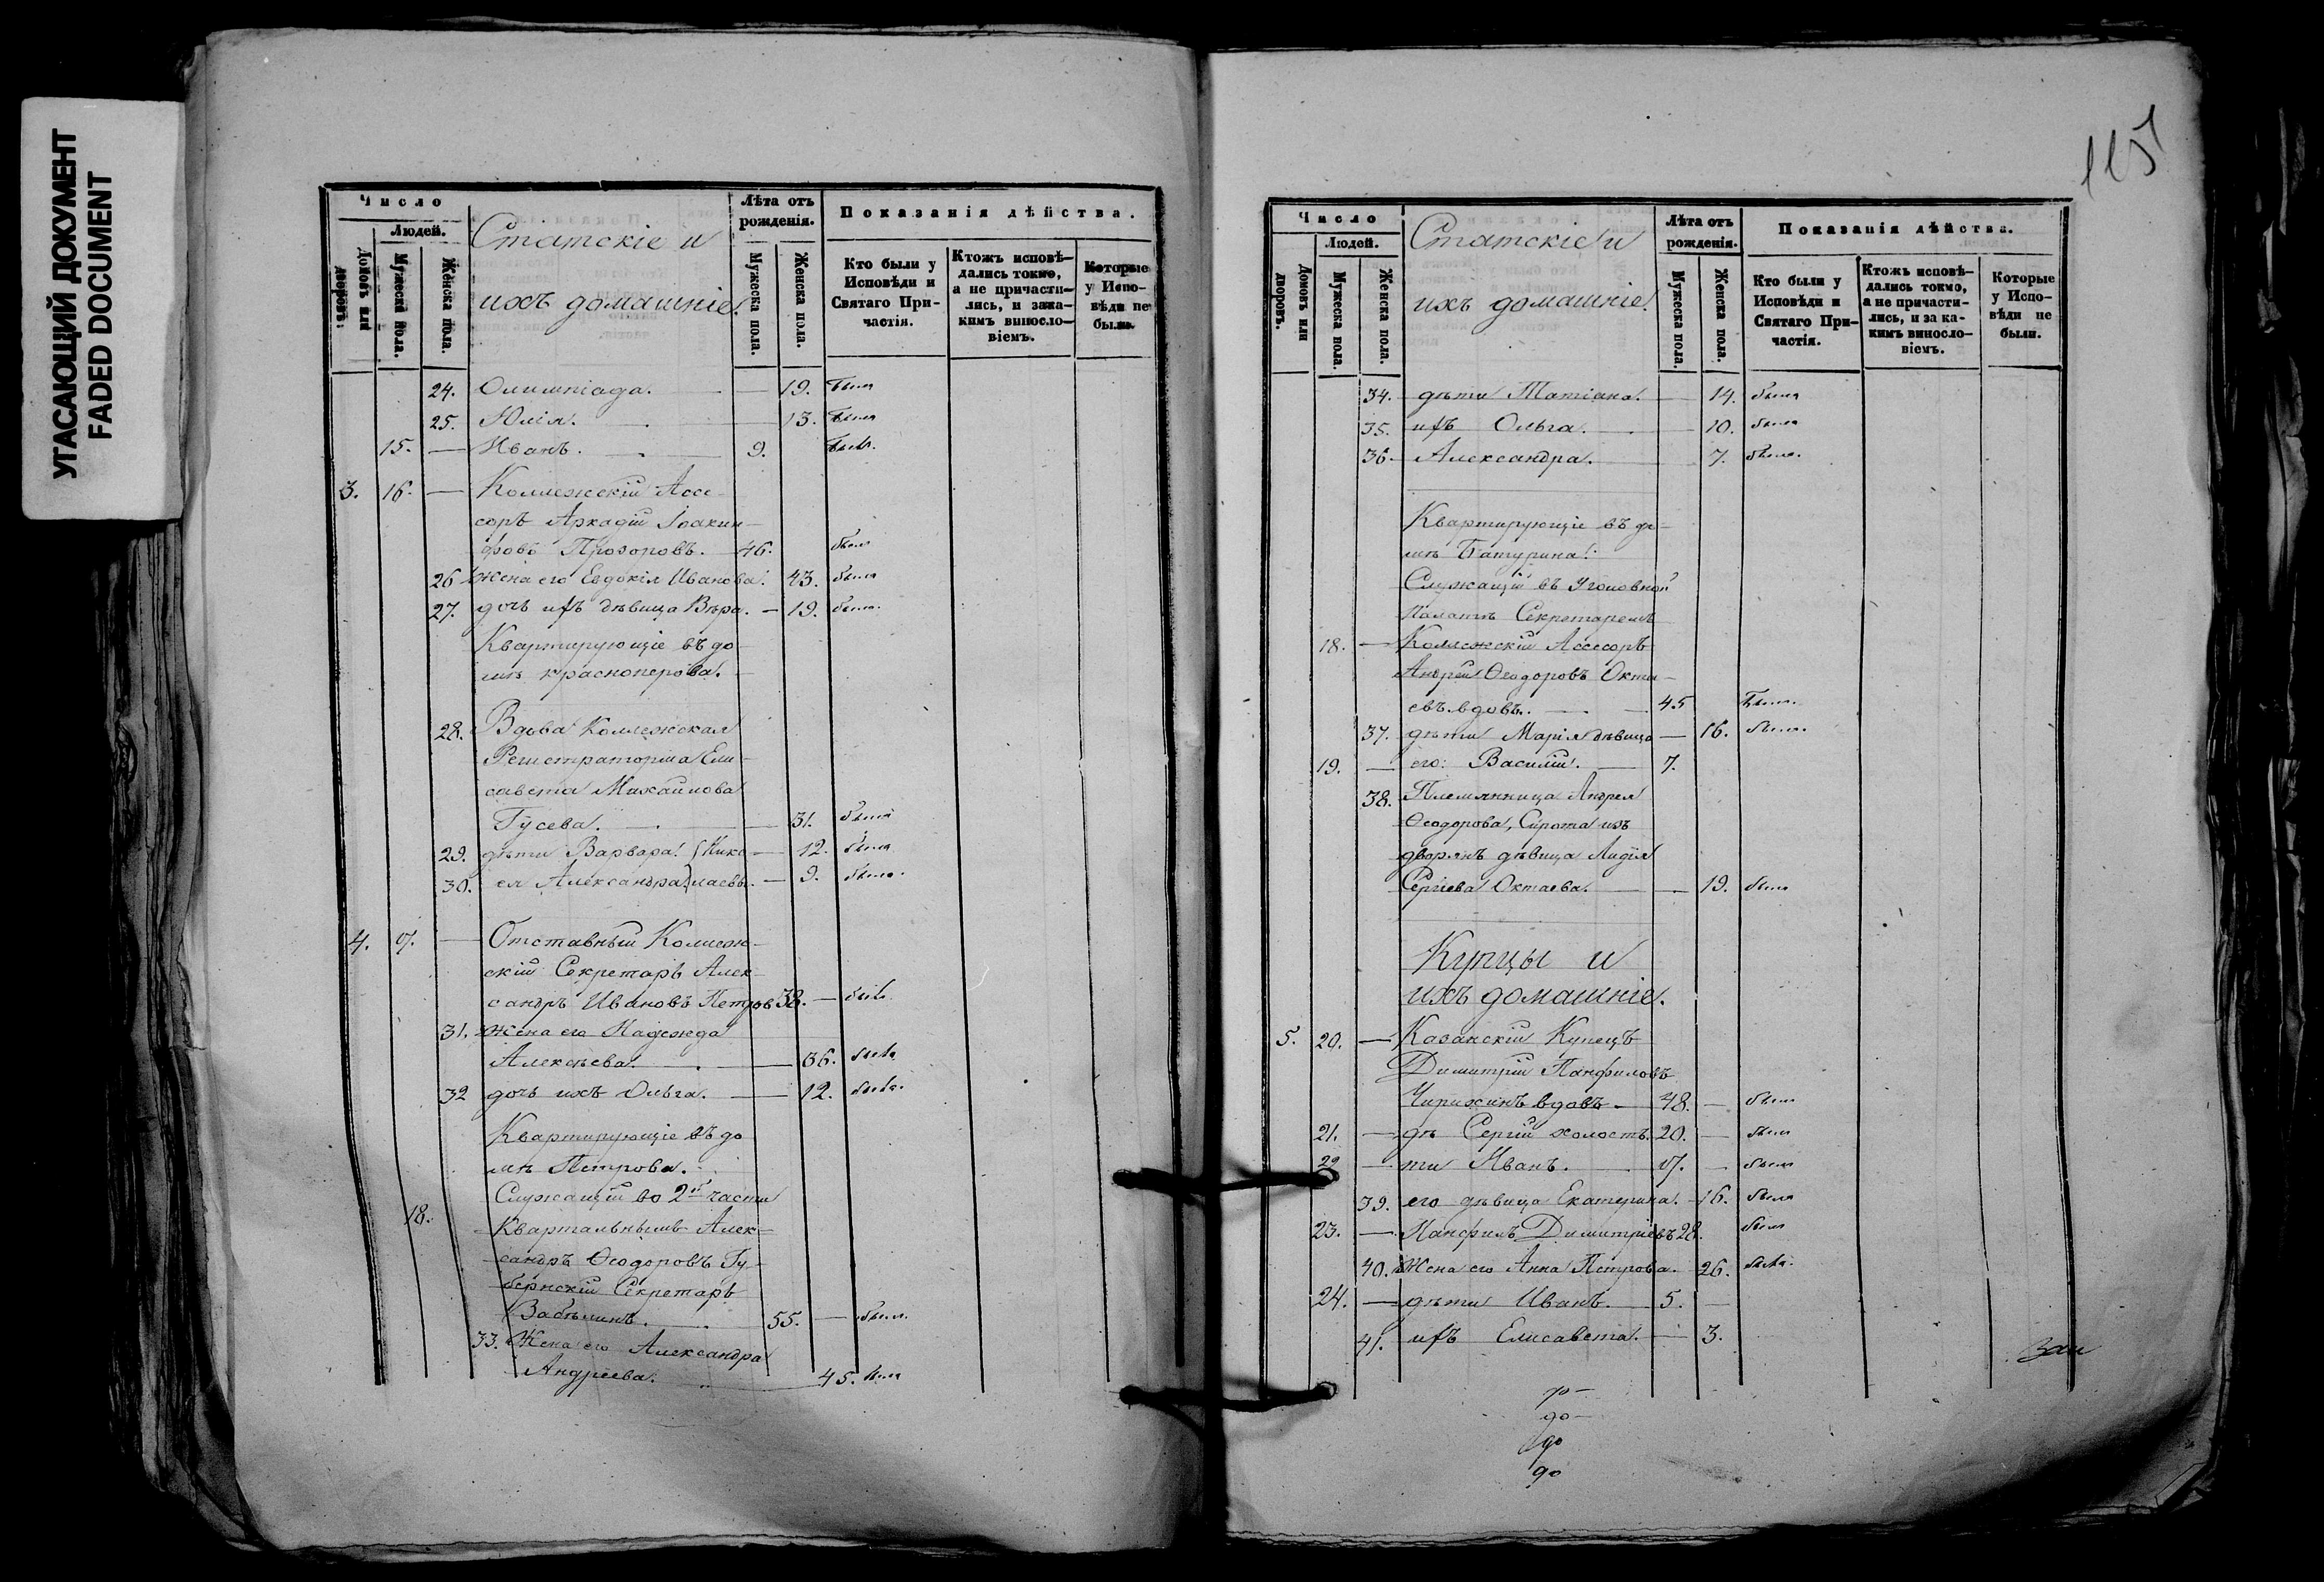 УГАСАЮЩИЙ ДОКУМЕНТ
FADED DOCUMENT
Число
Людей.
Домовъ или дворовъ.
Мужеска пола.
Женска пола.
Статскіе и
ихъ домашніе.
Лѣта отъ
рожденія.
Мужеска пола.
Женска пола.
Показанія дѣйства.
Кто были у
Исповѣди и
Святаго При-
частія.
Ктожъ исповѣ-
дались токмо,
а не причасти-
лись, и зака-
кимъ винословіемъ.
Которые
у Испо-
вѣди не
были.
24. Олимпіада. — 19. была
25. Юлія. — 13. была
15. — Иванъ. — 9. былъ.
3. 16. — Коллежскій Ассе-
соръ Аркадій Іоакин-
фовъ Прозоровъ. — 46. былъ
26 Жена его Евдокія Иванова. 43. была
27. дочь ихъ дѣвица Вѣра. — 19. была.
Квартирующіе въ до-
мѣ Красноперова.
28. Вдова Коллежская
Регистраторша Ели-
савета Михайлова
Гусева. — 31. была
29. дѣти Варвара (Нико- — 12. была
30. ея Александра) лаевы. — 9. была.
4. 17. — Отставный Коллеж-
скій Секретарь Алек-
сандръ Ивановъ Петров 38. — былъ.
31. Жена его Надежда
Алексѣева. — 36. была
32 дочь ихъ Ольга. — 12. была.
Квартирующіе въ до
мѣ Петрова.
Служащій во 2й части
18. Квартальнымъ Алек-
сандръ Ѳеодоровъ Гу-
бернскій Секретарь
Забѣлинъ. — 55. — былъ.
33. Жена его Александра
Андреева. — 45. была
115
Число
Людей.
Домовъ или дворовъ.
Мужеска пола.
Женска пола.
Статскіе и
ихъ домашніе.
Лѣта отъ
рожденія.
Мужеска пола.
Женска пола.
Показанія дѣйства.
Кто были у
Исповѣди и
Святаго При-
частія.
Ктожъ исповѣ-
дались токмо,
а не причасти-
лись, и за ка-
кимъ винословіемъ.
Которые
у Испо-
вѣди не
были.
34. дѣти Татіана. — 14. была
35. ихъ Ольга. — 10. была
36. Александра. 7. была.
Квартирующіе въ до-
мѣ Батурина.
Служащій въ Уголовной
Палатѣ Секретаремъ
18. — Коллежскій Ассесоръ
Андрей Ѳеодоровъ Окта-
евъ вдовъ. — 45 былъ.
37. дѣти Марія дѣвица — 16. была.
19. — его: Василій. — 7.
38. Племянница Андрея
Ѳеодорова, Сирота изъ
дворянъ дѣвица Лидія
Сергіева Октаева. — 19. была
Купцы и
ихъ домашніе.
5. 20. — Казанскій Купецъ
Димитрій Панфиловъ
Чирихинъ вдовъ — 48. — былъ
21. — дѣ Сергій холостъ. 20. — былъ
22 — ти Иванъ. — 17. — былъ
39. его дѣвица Екатерина. — 16. была
23. — Панфилъ Димитріевъ 28. былъ
40. Жена его Анна Петрова. 26. была.
24. — дѣти Иванъ. — 5. —
41. ихъ Елисавета. — 3.
до
до
до